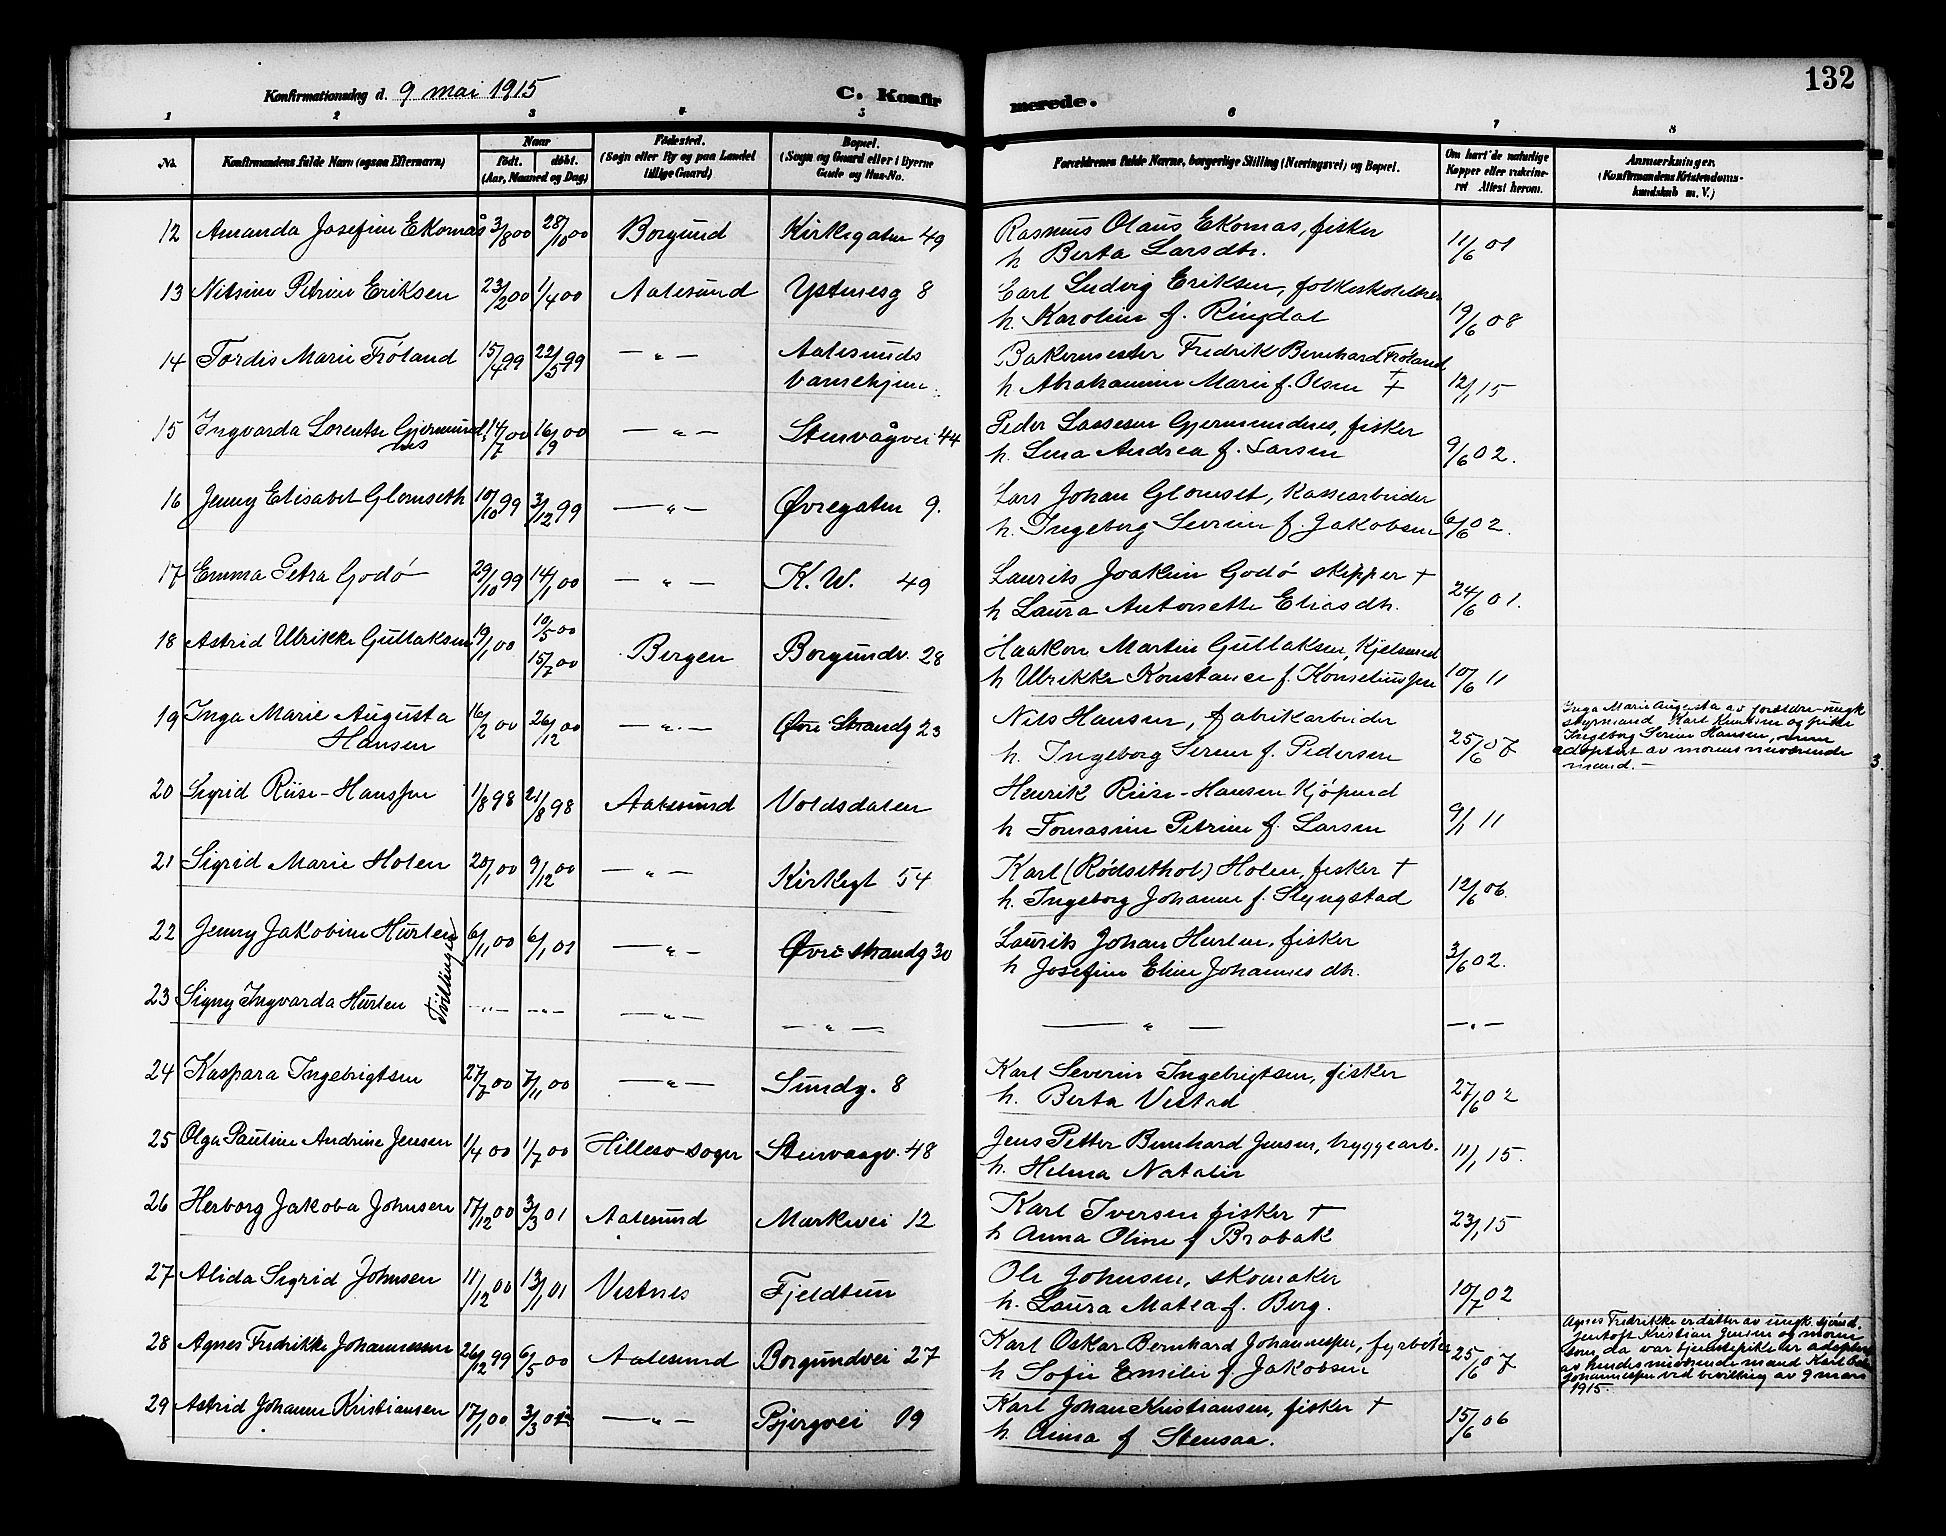 132
Konfirmationsdag d. 9 mai 1915 C. Konfirmerede.
1 2 3 4 5 6 7 8
No. Konfirmandens fulde Navn (ogsaa Efternavn) Naar født. døbt. (Aar, Maaned og Dag) Fødested. (Sogn eller By og paa Landet tillige Gaard) Bopæl. (Sogn og Gaard eller i Byerne Gade og Hus-No. Forældrenes fulde Navne, borgerlige Stilling (Næringsvei) og Bopæl. Om havt de naturlige Kopper eller vaccineret Attest herom. Anmærkninger. (Konfirmandens Kristendomskundskab m. V.)
12 Amanda Josefine Ekornås 3/8 00 28/10 00 Borgund Kirkegaten 49 Rasmus Olaus Ekornas, fisker 11/6 01
h Berta Larsdtr.
13 Nilsine Petrine Eriksen 23/2 00 1/4 00 Aalesund Ystenesg 8 Carl Ludvig Eriksen, folkeskolelærer
h. Karoline f. Ringdal 19/6 08
14 Tordis Marie Frøland 15/4 99 22/5 99 — " — Aalesunds Bakermester Fredrik Bernhard Frøland
barnehjem h Abrahamine Marie f. Olsen † 12/1 15
15 Ingvarda Lorentse Gjermundnes 14/7 00 16/9 00 — " — Stenvågvei 44 Peder Lassesen Gjermundnes, fisker
h. Lina Andrea f. Larsen 9/6 02.
16 Jenny Elisabet Glomseth 10/10 99 3/12 99 — " — Øvregaten 9. Lars Johan Glomset, Kassearbeider
h. Ingeborg Severine f. Jakobsen 6/6 02.
17 Emma Petra Godø 29/10 99 14/1 00 — " — K. W. 49 Laurits Joakim Godø skipper †
h Laura Antonette Eliasdtr. 24/6 01.
18 Astrid Ulrikke Gullaksen 19/1 00 10/5 00 15/7 00 Bergen Borgundv. 28 Haakon Martin Gullaksen, Kjelsmed
h Ulrikke Konstance f. Konseliussen 10/6 11
19 Inga Marie Augusta Hansen 16/2 00 26/12 00 — " — Øvre Strandg 23 Nils Hansen, fabrikarbeider
h. Ingeborg Serine f. Pedersen 25/6 07
Inga Marie Augusta av forældre ungk
styrmand Karl Knutsen og pike
Ingeborg Serine Hansen,
adoptert av morens nuværende
mand. —
20 Sigrid Riise-Hanssen 1/8 98 21/8 98 Aalesund Voldsdalen Henrik Riise-Hansen Kjøpmd
h Tomasine Petrine f. Larsen 9/1 11
21 Sigrid Marie Holen 20/1 00 9/12 00 — " — Kirkegt 54 Karl (Rødsethol) Holen, fisker †
h. Ingeborg Johanne f. Slyngstad 12/6 06.
22 Jenny Jakobine Hurlen 6/11 00 6/1 01 — " — Øvre strandg 30 Laurits Johan Hurlen, fisker
h Josefine Eline Johannesdtr. 3/6 02.
Tvillinger
23 Signy Ingvarda Hurlen — " — — " — — " — — " — — " — — " —
24 Kaspara Ingebrigtsen 27/7 00 7/11 00 — " — Sundg. 8 Karl Severin Ingebrigtsen, fisker
h. Berta Vestad 27/6 02
25 Olga Pauline Andrine Jensen 1/4 00 1/7 00 Hillesø sogn Stenvaagv. 48 Jens Petter Bernhard Jensen, bryggearb.
h. Helma Natalie 11/1 15.
26 Herborg Jakoba Johnsen 17/12 00 3/3 01 Aalesund Markevei 12 Karl Iversen fisker †
h Anna Oline f Brobak 23/1 15
27 Alida Sigrid Johnsen 11/12 00 13/1 01 Vestnes Fjeldtun Ole Johnsen, skomaker
h. Laura Matea f. Berg. 10/7 02
28 Agnes Fredrikke Johannessen 26/12 99 6/5 00 Aalesund Borgundvei 27 Karl Oskar Bernhard Johannessen, fyrbøter
h Sofie Emilie f Jakobsen 25/6 07
Agnes Fredrikke er datter av ungk. sjømd.
Jentoft Kristian Jensen og moren
som da var tjenestepike er adoptert
av hendes nuværende mand Karl
Johannessen ved bevilling av 9 mars
1915.
29 Astrid Johanne Kristiansen 17/1 00 3/3 01 — " — Bjergvei 19 Karl Johan Kristiansen, fisker †
h. Anna f Stensaa. 15/6 06
3.